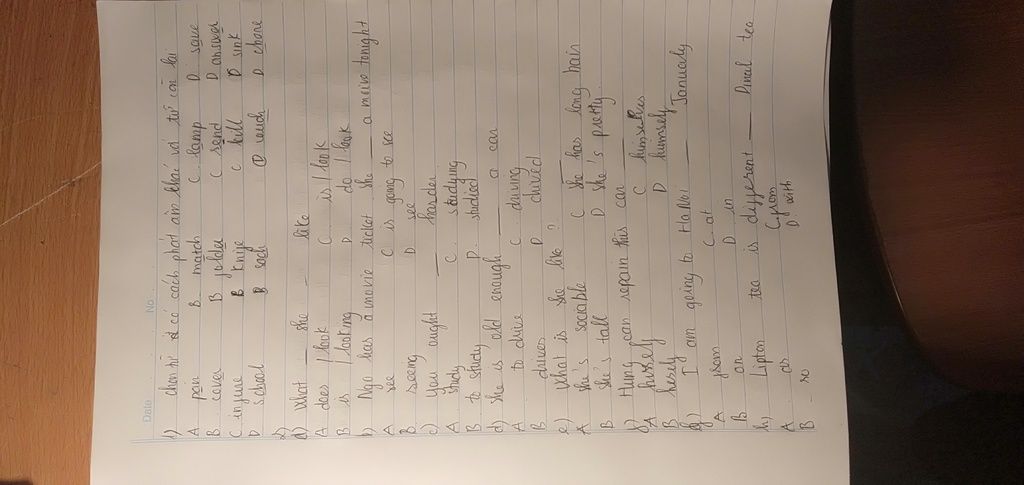 Date No
1) chọn từ có cách phát âm khác với từ còn lại
A pan B match C lamp D save
B cover B folder C send D answer
C injure B knife C kill D sink
D school B sach D chore
2)
a) What ___ she ___ like
A does / look C is / look
B is / looking D do / look
b) Nga has a movie ticket she ___ a movie tonight
A see C is going to see
B seeing D see
c) You ought ___ harder
A study C studying
B to study D studied
d) she is old enough ___ a car
A to drive C driving
B drives D drived
e) What is she like ? ___
A she's sociable C she has long hair
B she's tall D she's pretty
f) Hung can repair this car ___
A C
B D himself
g) I am going to Ha Noi ___ Januady
A from C at
B on D in
h) Lipton tea is different ___ Dinal tea
A as C from
B so D with